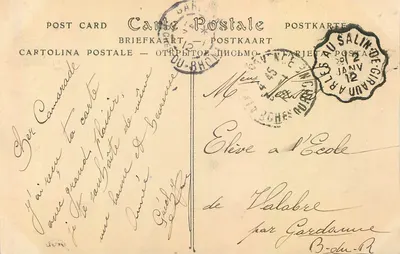 POST CARD Carte Postale POSTKARTE
BRIEFKAART — POSTKAART
CARTOLINA POSTALE — ОТКРЫТОЕ ПИСЬМО
ARLES AU SALIN-DE-GIRAUD
2
JANV
12
Cher Camarade
J'ai reçu ta carte
avec grand plaisir,
je te souhaite de même
une bonne et heureuse
Année
Elève a l'Ecole
de Valabre
par Gardanne
B-du-R